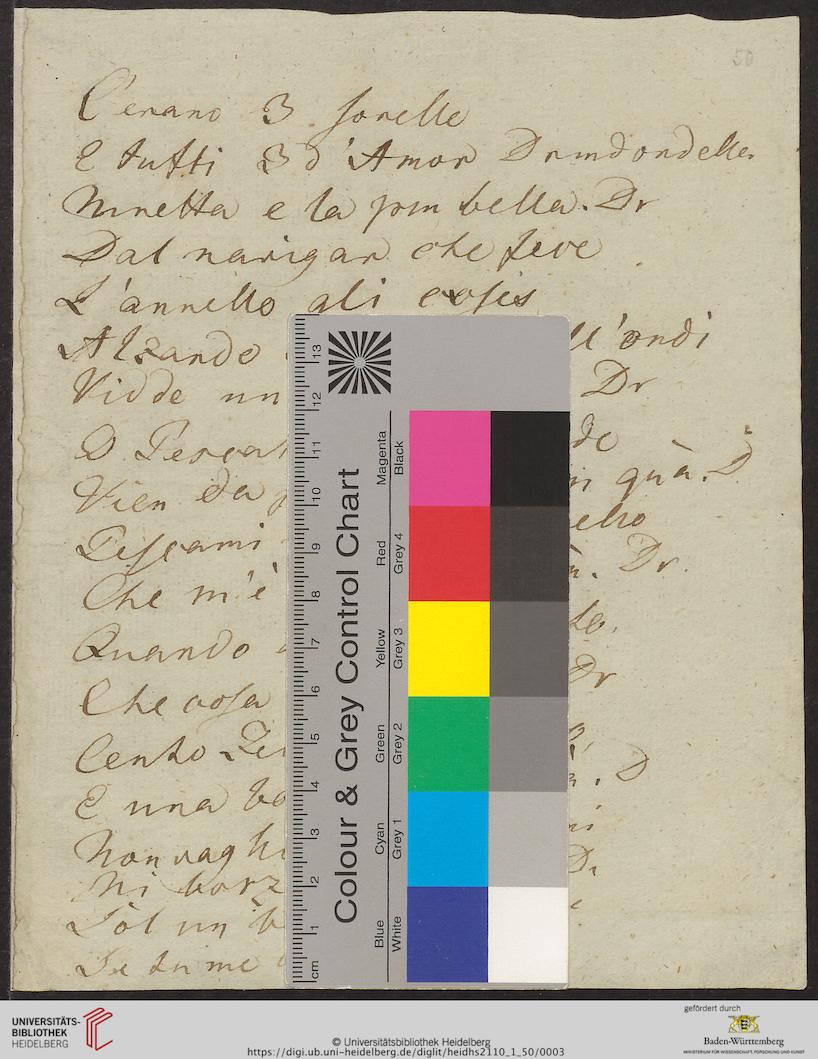 50
C'erano 3 sorelle
E tutti 3 d'Amor Drindondelle.
Ninetta e la piu bella. Dr
Dal navigar che feve
L'annello gli
Alzando ll'ondi
Vidde un Dr
O Pescat de
Vien da in quà. D
Pescami ello
Che m'è Dr.
Quando to.
Che cosa Dr
Cento D
E una bo
Non vagh Dr
Ni borz
Sol un b
Se tu me
Colour & Grey Control Chart
Magenta Black
Red Grey 4
Yellow Grey 3
Green Grey 2
Cyan Grey 1
Blue White
13
12
11
10
9
8
7
6
5
4
3
2
1
cm
UNIVERSITÄTS-
BIBLIOTHEK
HEIDELBERG
© Universitätsbibliothek Heidelberg
https://digi.ub.uni-heidelberg.de/diglit/heidhs2110_1_50/0003
gefördert durch
Baden-Württemberg
MINISTERIUM FÜR WISSENSCHAFT, FORSCHUNG UND KUNST